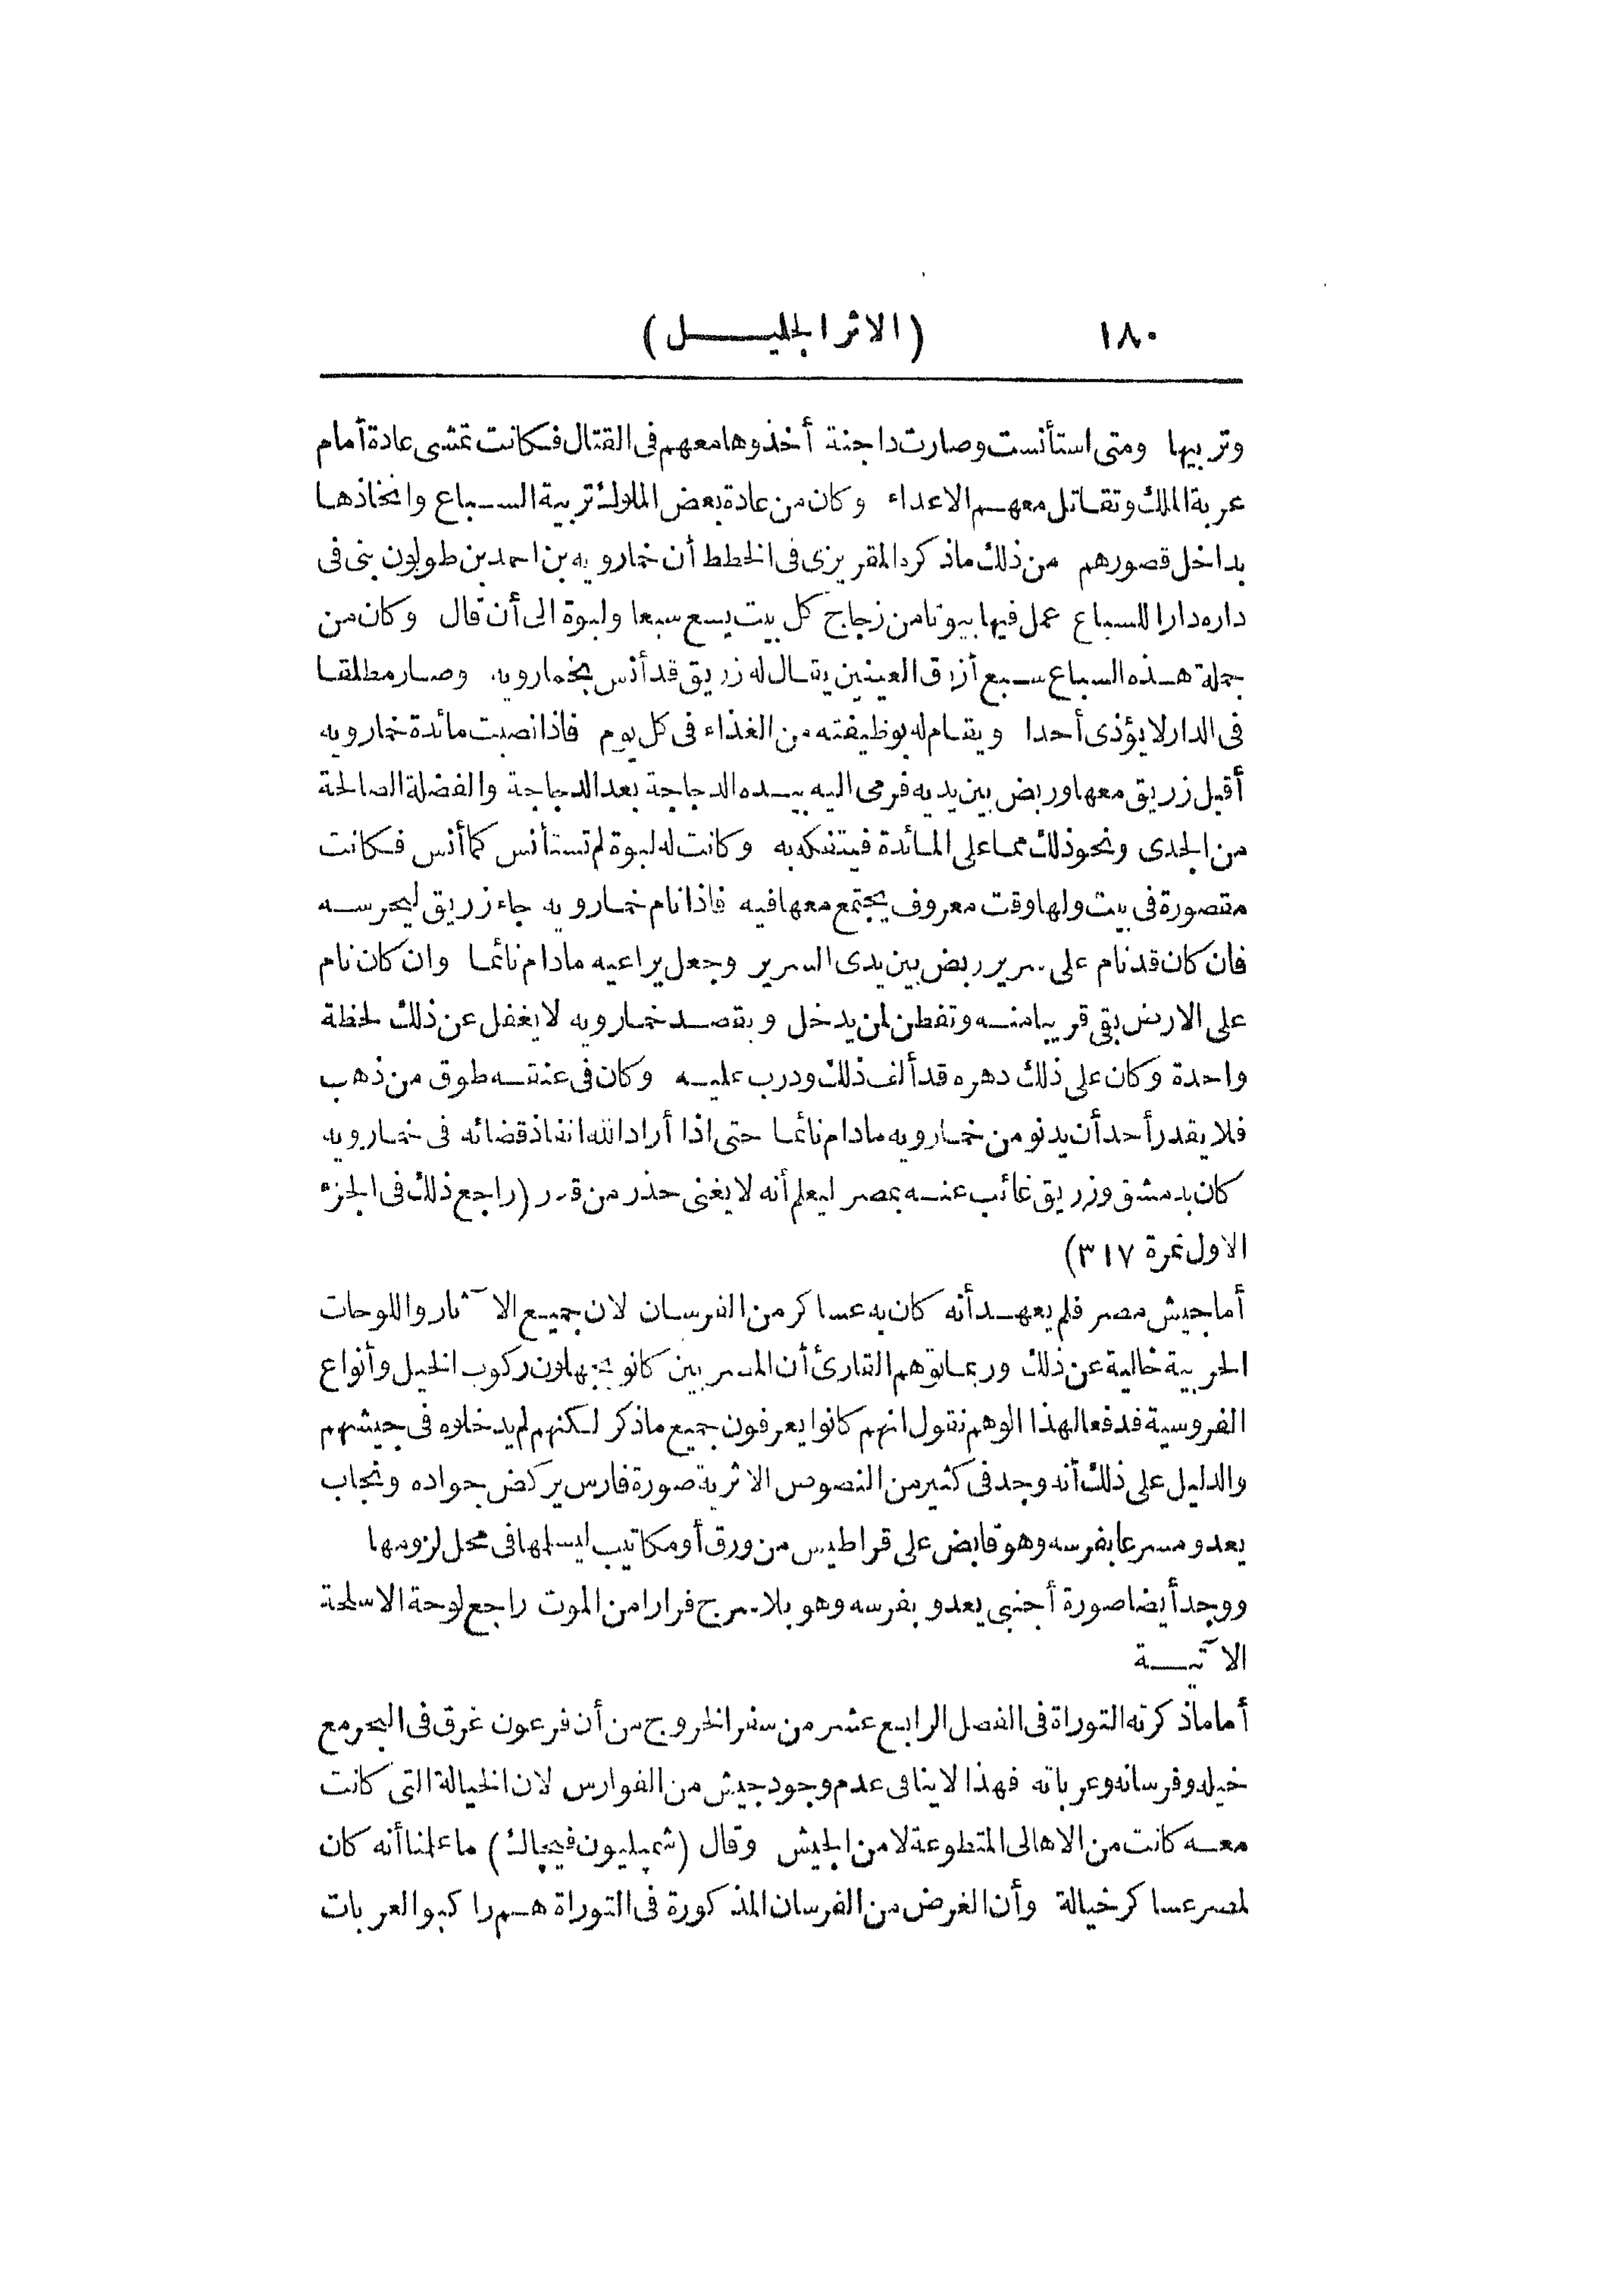 ١٨٠ (الاثر الجليل)
وتربيها ومتى استأنست وصارت داجنة أخذوها معهم فى القتال فكانت تمشى عادة أمام
عربة الملك وتقاتل معهم الاعداء وكان من عادة بعض الملوك تربية السباع واتخاذها
بداخل قصورهم من ذلك ماذكره المقريزى فى الخطط أن خمارويه بن احمد بن طولون بنى فى
داره دارا للسباع عمل فيها بيوتا من زجاج كل بيت يسع سبعا ولبوة الى أن قال وكان من
جملة هذه السباع سبع أزرق العينين يقال له زريق قد أنس بخمارويه وصار مطلقا
فى الدار لا يؤذى أحدا ويقام له بوظيفته من الغذاء فى كل يوم فاذا نصبت مائدة خمارويه
أقبل زريق معها وربض بين يديه فرمى اليه بيده الدجاجة بعد الدجاجة والفضلة الصالحة
من الجدى ونحو ذلك مما على المائدة فيتفكه به وكانت له لبوة لم تستأنس كما أنس فكانت
مقصورة فى بيت ولها وقت معروف يجتمع معها فيه فاذا نام خمارويه جاء زريق ليحرسه
فان كان قد نام على سرير ربض بين يدى السرير وجعل يراعيه مادام نائما وان كان نام
على الارض بقى قريبا منه وتفطن لمن يدخل ويقصد خمارويه لا يغفل عن ذلك لحظة
واحدة وكان على ذلك دهره قد ألف ذلك ودرب عليه وكان فى عنقه طوق من ذهب
فلا يقدر أحد أن يدنو من خمارويه مادام نائما حتى اذا أراد الله انفاذ قضائه فى خمارويه
كان بدمشق وزريق غائب عنه بمصر ليعلم أنه لا يغنى حذر من قدر (راجع ذلك فى الجزء
الاول نمرة ٣١٧)
أما جيش مصر فلم يعهد أنه كان به عساكر من الفرسان لان جميع الآثار واللوحات
الحربية خالية عن ذلك وربما توهم القارئ أن المصريين كانو يجهلون ركوب الخيل وأنواع
الفروسية فدفعا لهذا الوهم نقول انهم كانوا يعرفون جميع ماذكر لكنهم لم يدخلوه فى جيشهم
والدليل على ذلك أنه وجد فى كثير من النصوص الاثرية صورة فارس يركض جواده ونجاب
يعدو مسرعا بفرسه وهو قابض على قراطيس من ورق أو مكاتيب ليسلمها فى محل لزومها
ووجد أيضا صورة أجنبى يعدو بفرسه وهو بلا سرج فرارا من الموت راجع لوحة الاسلحة
الآتية
أما ماذكرته التوراة فى الفصل الرابع عشر من سفر الخروج من أن فرعون غرق فى البحر مع
خيله وفرسانه وعرباته فهذا لا ينافى عدم وجود جيش من الفوارس لان الخيالة التى كانت
معه كانت من الاهالى المتطوعة لا من الجيش وقال (شمپليون فيچاك) ما علمنا أنه كان
لمصر عساكر خيالة وأن الغرض من الفرسان المذكورة فى التوراة هم راكبو العربات